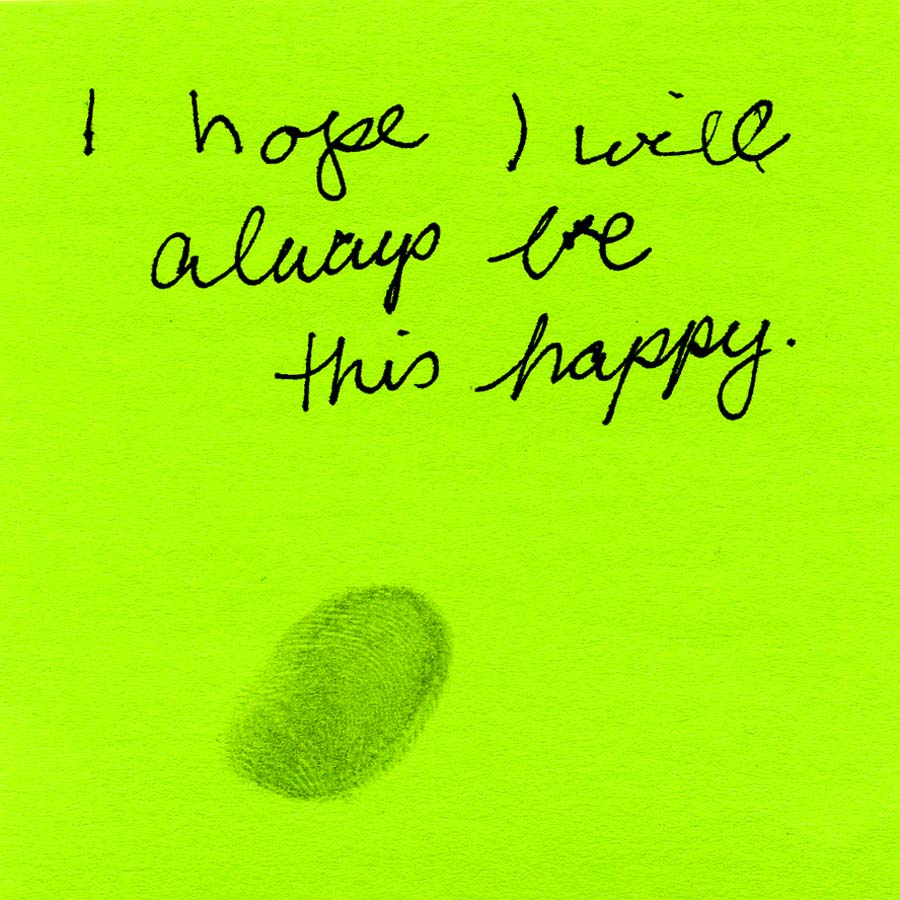 I hope I will
always be
this happy.